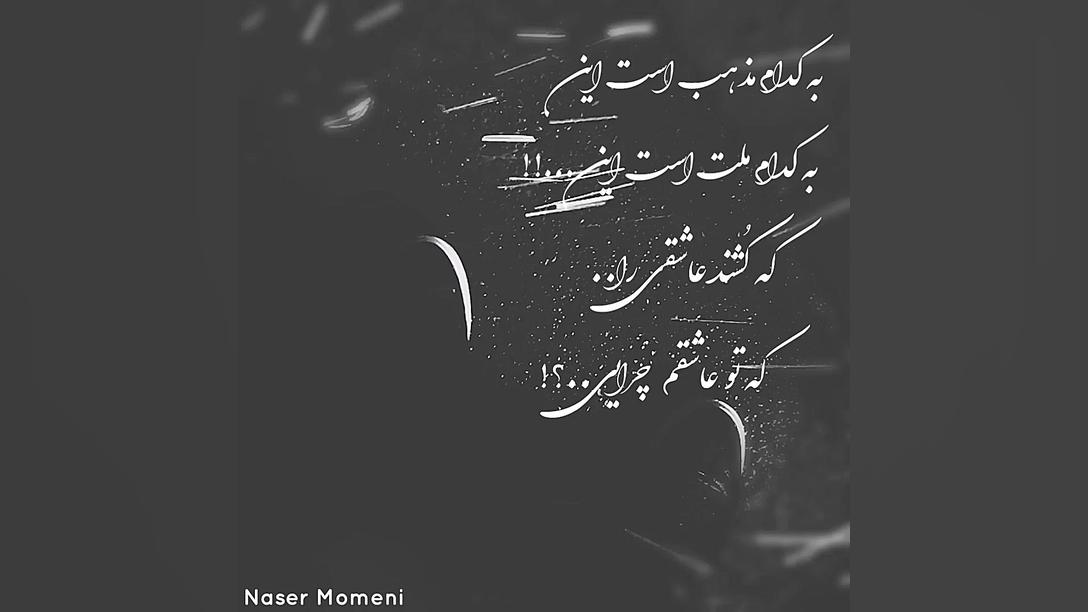 به کدام مذهب است این
به کدام ملت است این...!!
که کُشند عاشقی را..
که تو عاشقم چرایی..؟!
Naser Momeni